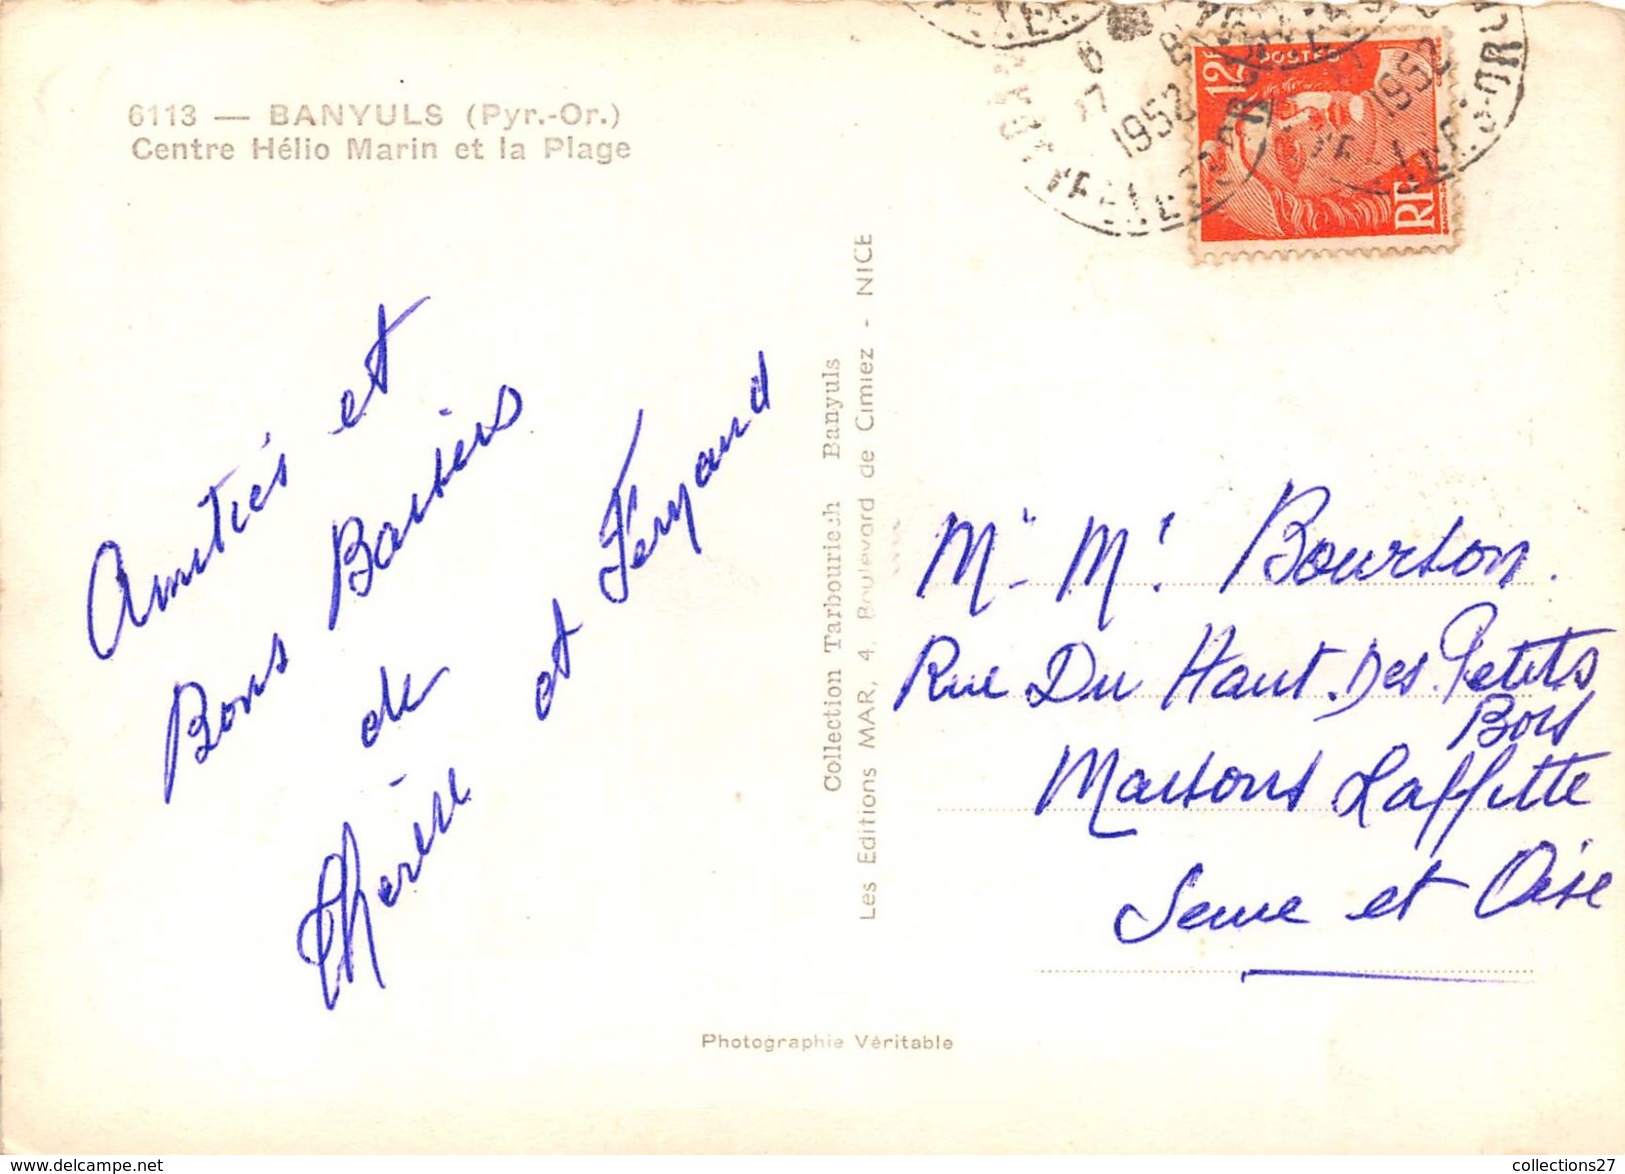 6113 — BANYULS (Pyr.-Or.)
Centre Hélio Marin et la Plage
Amitiés et
Bons Baisers
de
Thérèse et Fernand
Collection Tarbouriech Banyuls
Les Editions MAR, 4, Boulevard de Cimiez - NICE
12F
POSTES
RF
1952
1952
Mr Me Bourson.
Rue Du Haut Des Petits
Bois
Maisons Laffitte
Seine et Oise
Photographie Véritable
www.delcampe.net
collections27